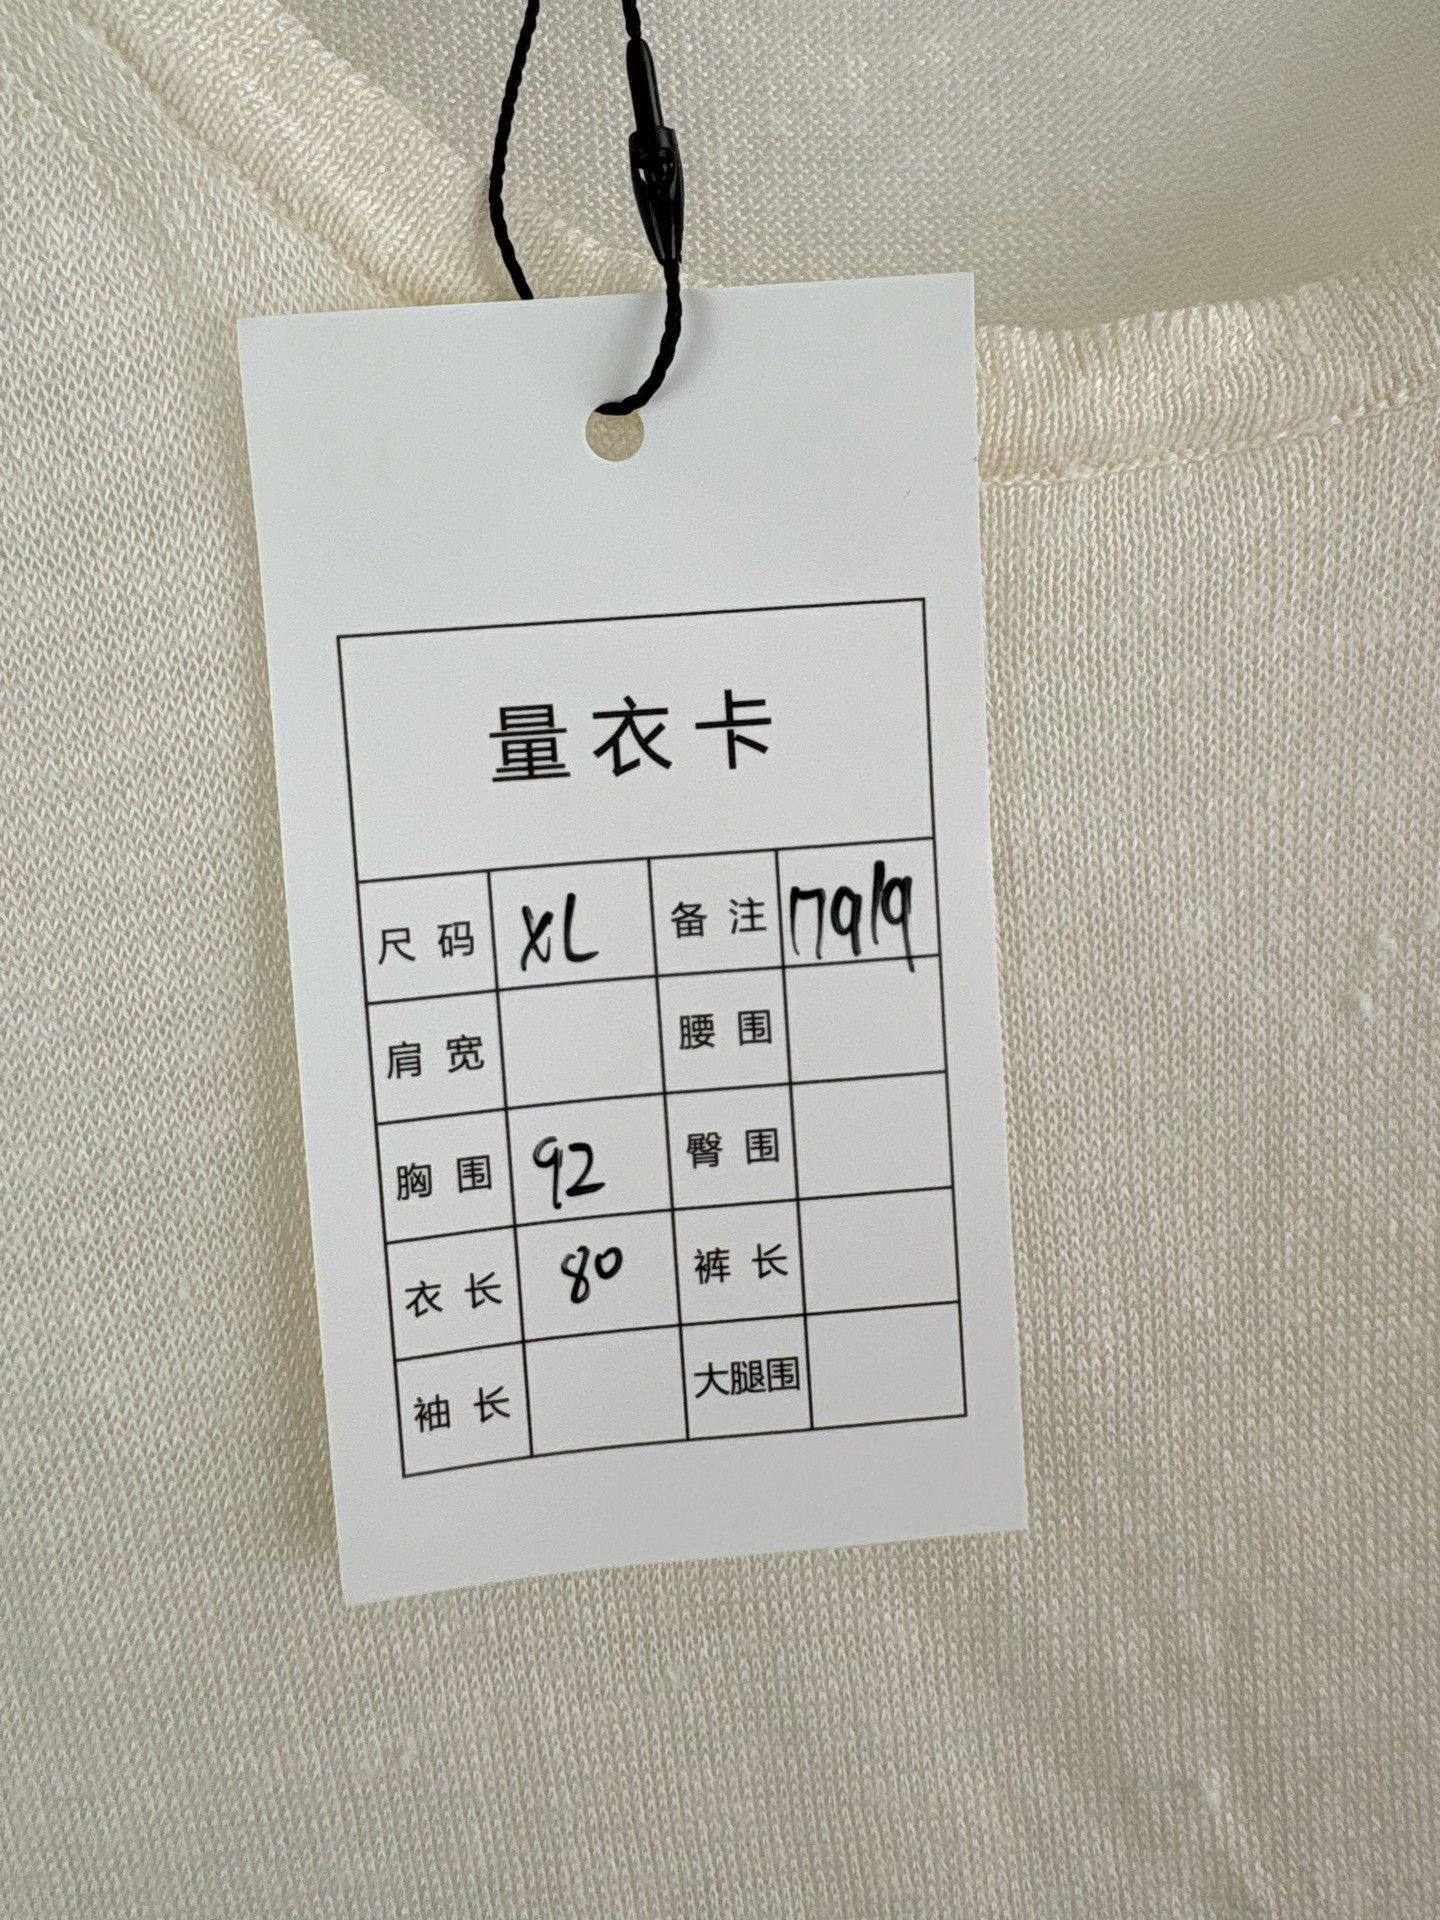 量衣卡
尺码 XL 备注 7919
肩宽 腰围
胸围 92 臀围
衣长 80 裤长
袖长 大腿围